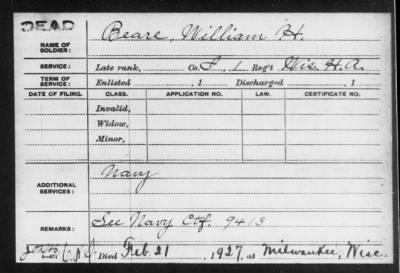 DEAD
NAME OF SOLDIER: Beare, William H.
SERVICE: Late rank, Co. I, 1 Reg't Wis. H. A.
TERM OF SERVICE: Enlisted , 1 Discharged , 1
DATE OF FILING. CLASS. APPLICATION NO. LAW. CERTIFICATE NO.
Invalid,
Widow,
Minor,
ADDITIONAL SERVICES: Navy
REMARKS: See Navy Ctf. 9413
Died Feb. 21, 1927, at Milwaukee, Wisc.